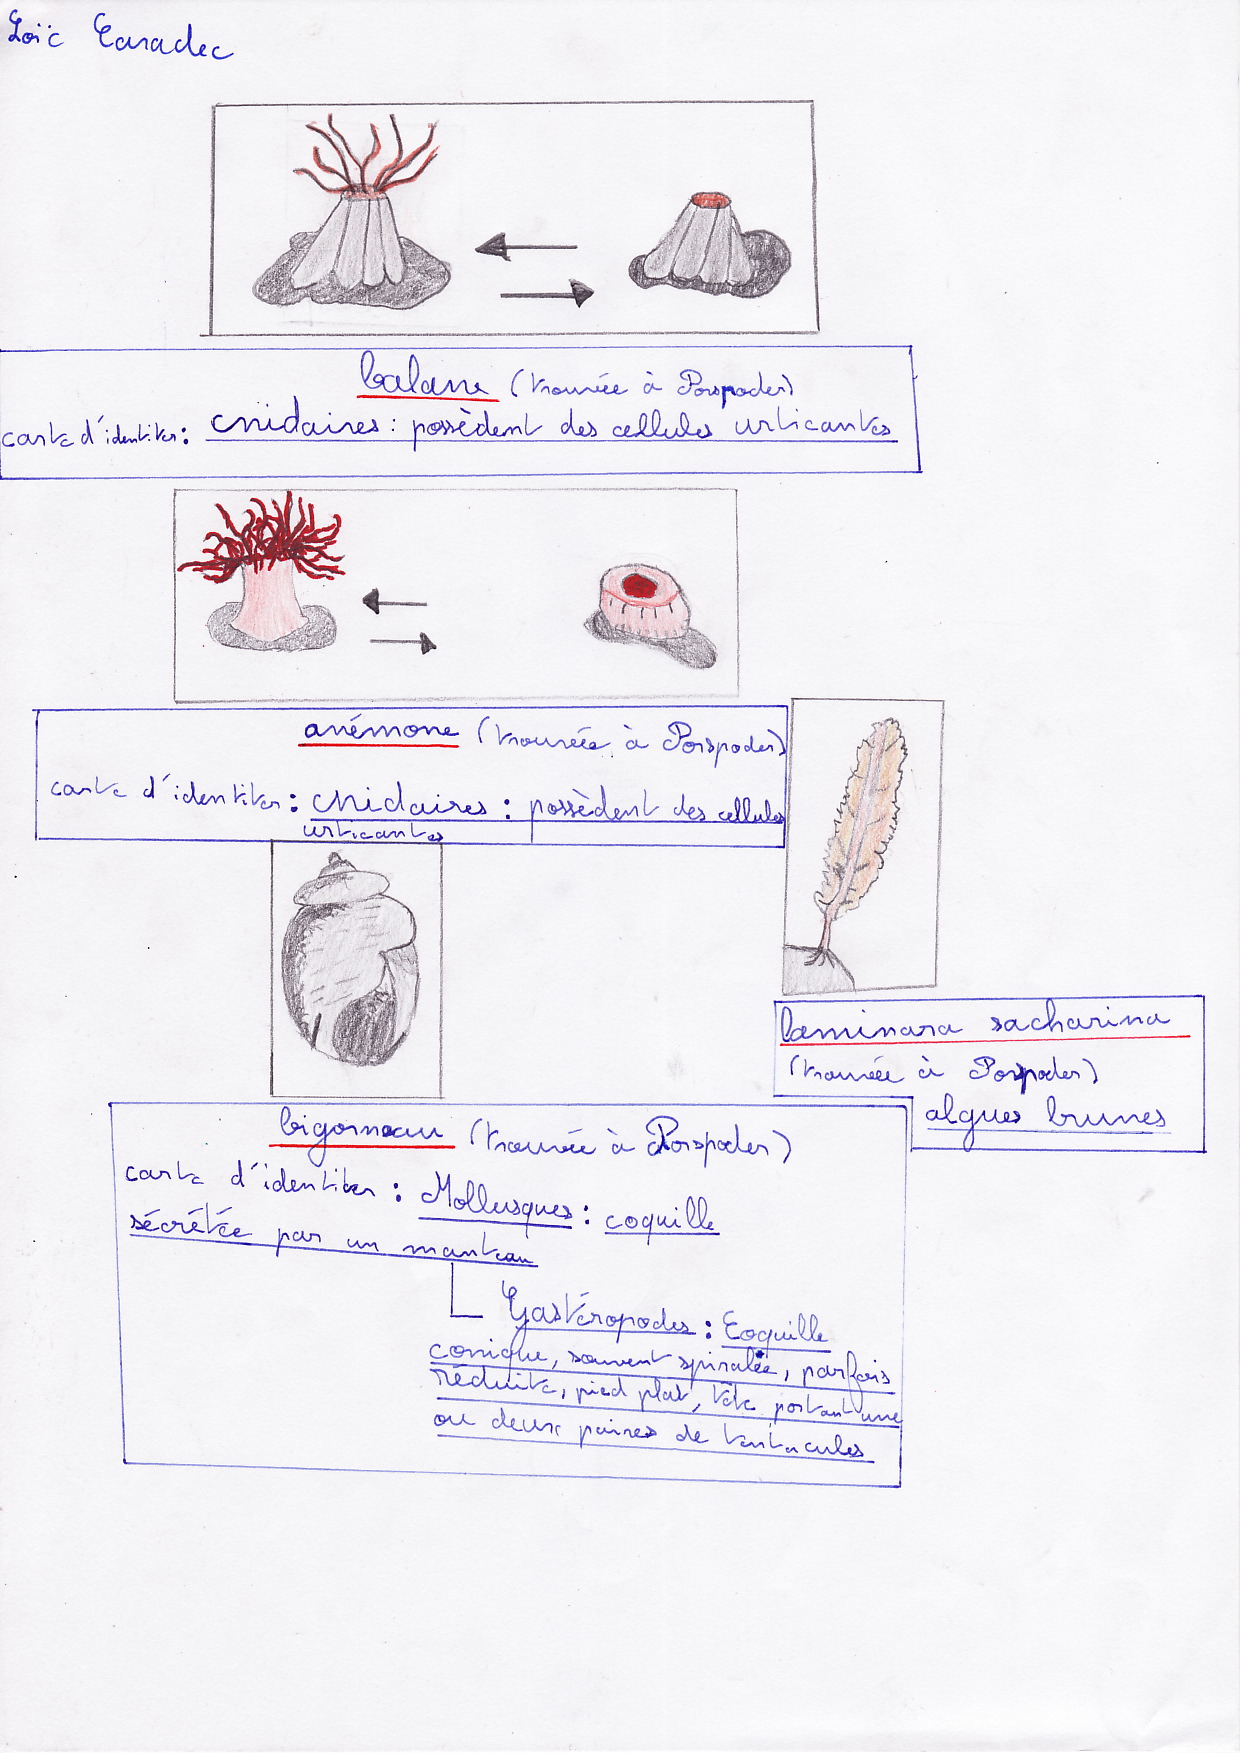 Loïc Caradec
balane (trouvée à Porspoder)
carte d'identiter : cnidaires : possèdent des cellules urticantes
anémone (trouvée à Porspoder)
carte d'identiter : cnidaires : possèdent des cellules
urticantes
laminara sacharina
(trouvée à Porspoder)
algues brunes
bigorneau (trouvée à Porspoder)
carte d'identiter : Mollusques : coquille
sécrétée par un manteau
Gastéropodes : Coquille
conique, souvent spiralée, parfois
réduite, pied plat, tête portant une
ou deux paires de tentacules